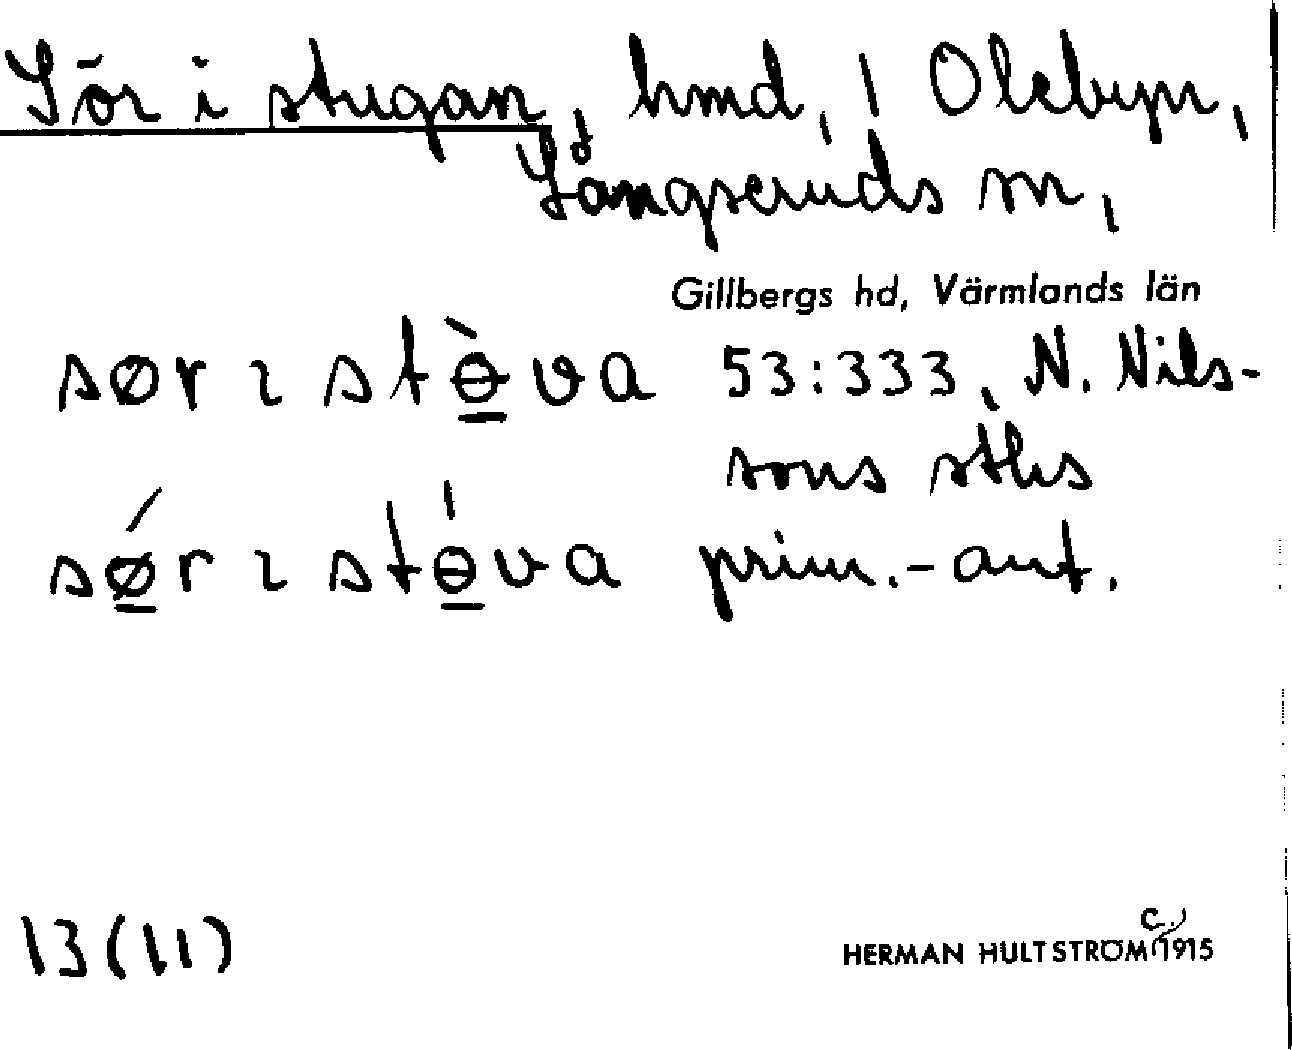 Sör i stugan, hmd, 1 Olebyn,
Långseruds sn,
Gillbergs hd, Värmlands län
sør ɩ stɵ̀va 53:333, N. Nils-
sons sths
sǿr ɩ stɵ́va prim.-ant.
13(11)
HERMAN HULTSTRÖM C. 1915